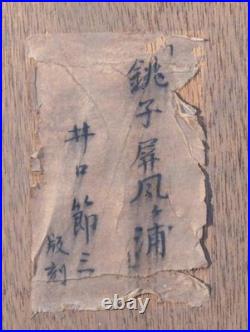 「銚子屏風ヶ浦
井口節三
版刻